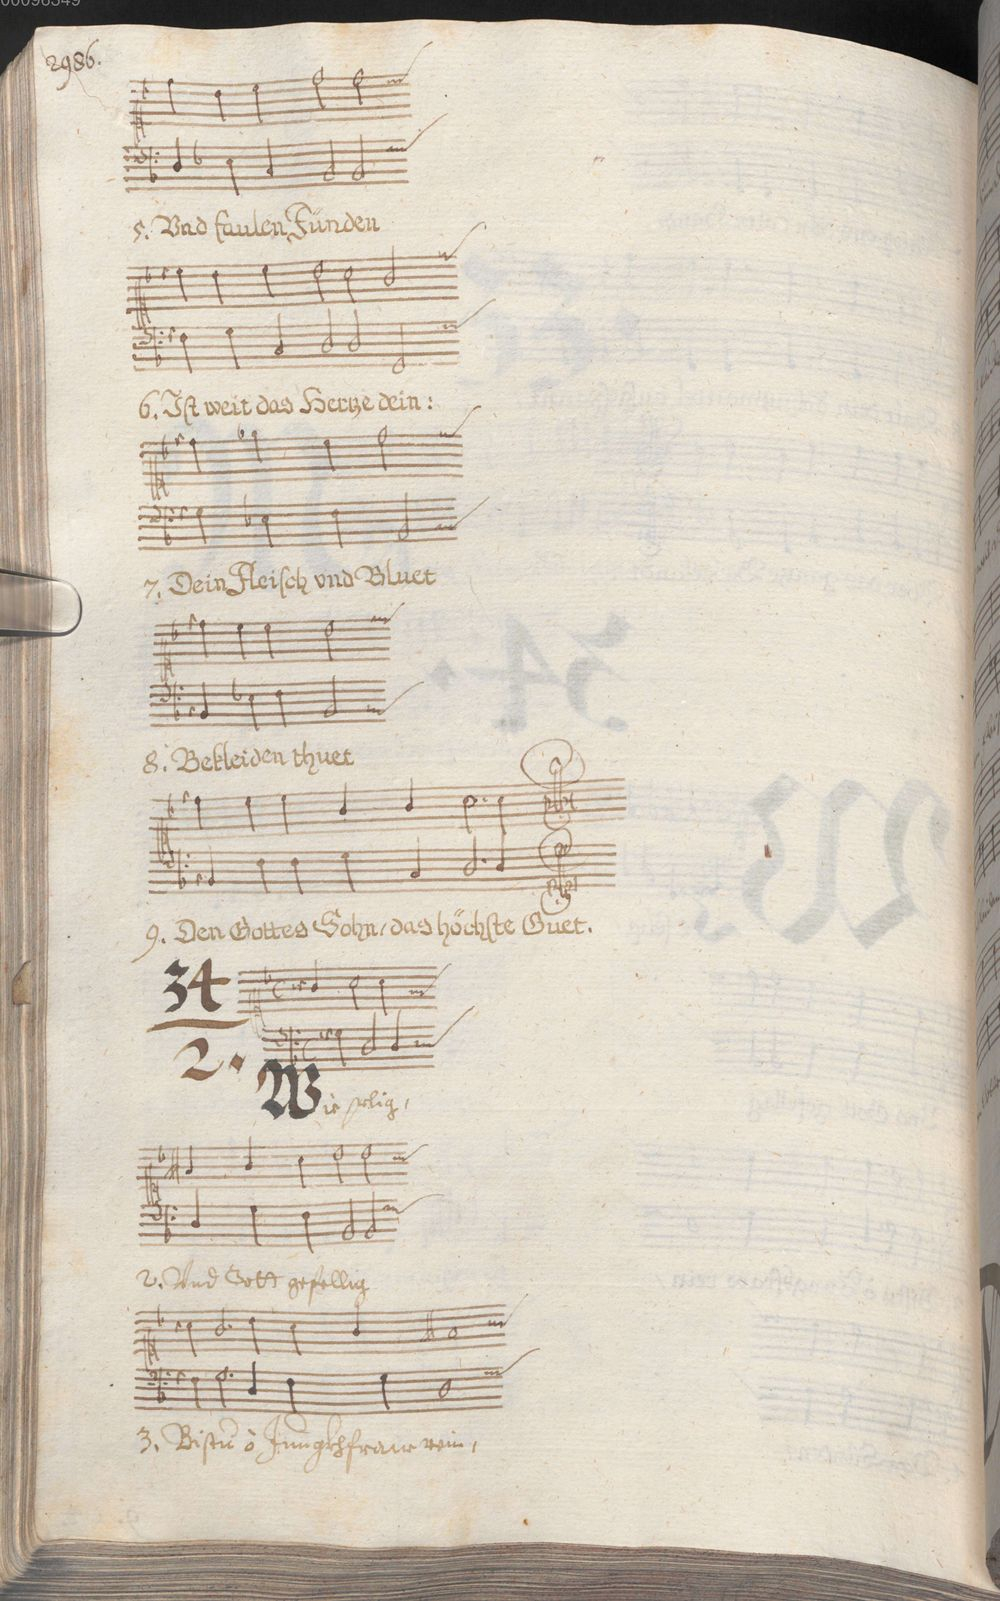 00098349
2986.
5. Vnd faulen Fünden
6. Ist weit das Hertze dein:
7. Dein Fleisch vnd Bluet
8. Bekleiden thuet
9. Den Gottes Sohn, das höchste Guet.
34
2.
Wie selig,
2. Vnd Gott gefellig
3. Bistu ô Jungkhfraw rein,